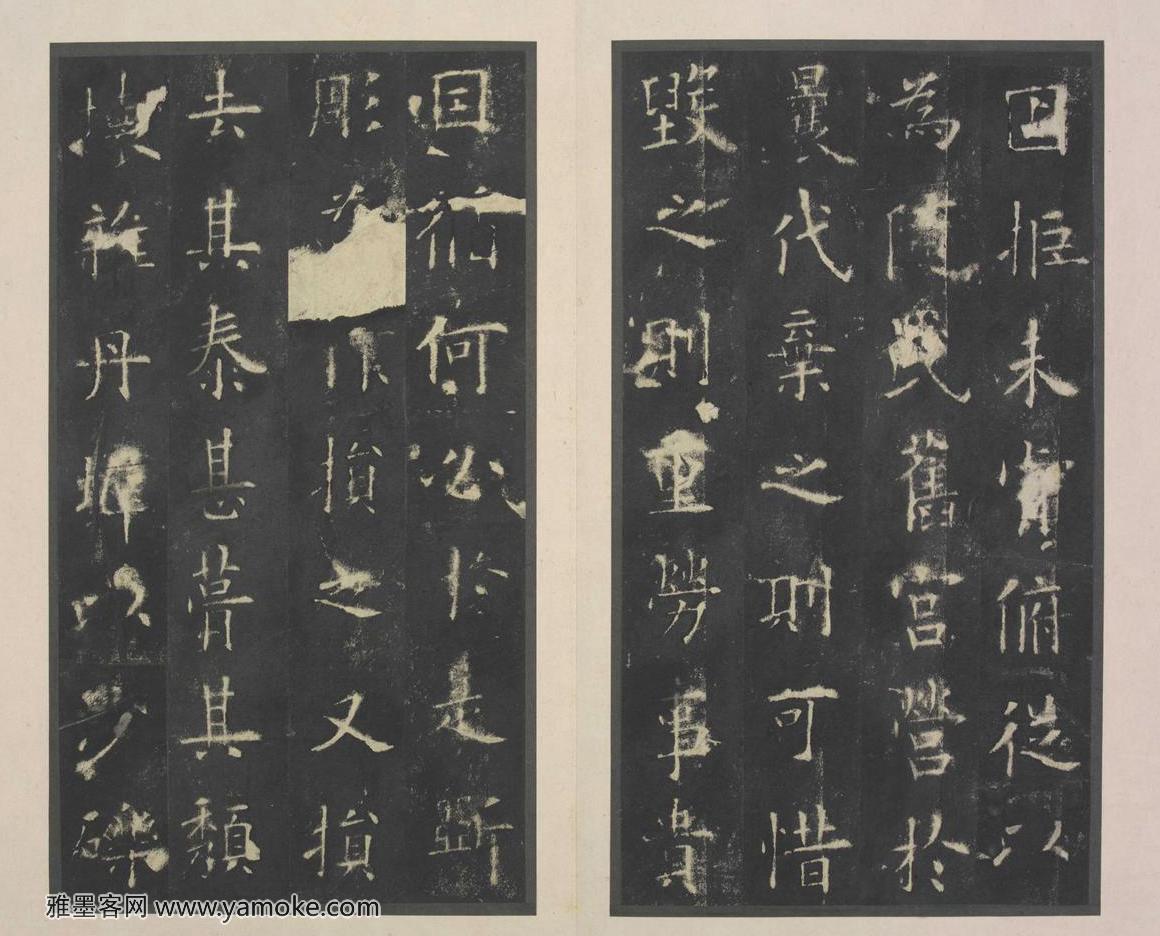 固拒未肯俯從以
為隨氏舊宮營於
曩代棄之則可惜
毀之則重勞事貴
因循何必於是斲
彫為損之又損
去其泰甚葺其頹
壞雜丹墀以沙礫
雅墨客网 www.yamoke.com